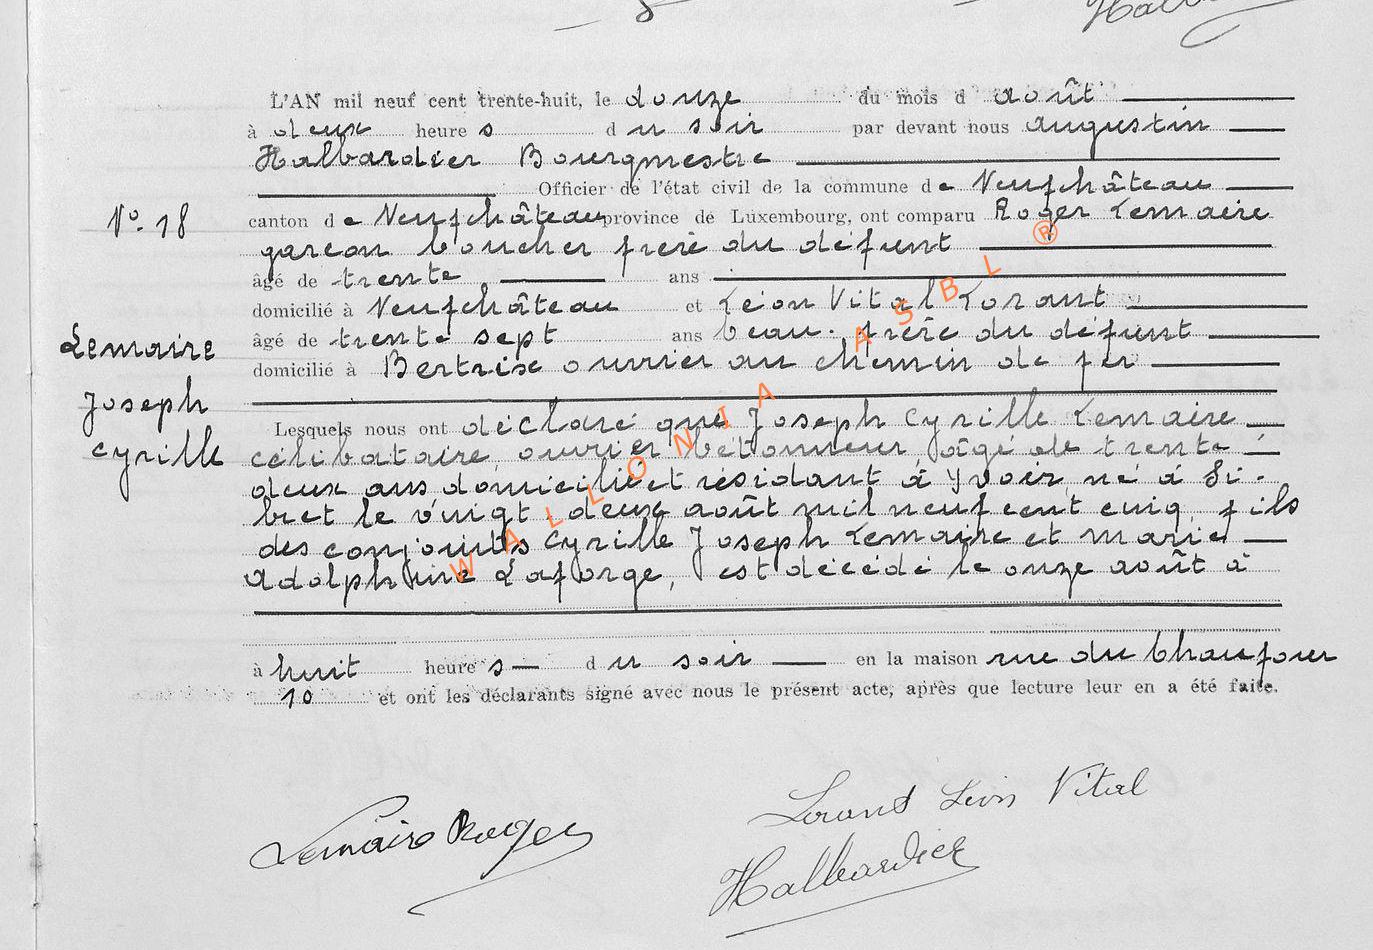 L'AN mil neuf cent trente-huit, le douze du mois d août
à deux heure s d u soir par devant nous Augustin
Halbardier Bourgmestre
Officier de l'état civil de la commune d e Neufchâteau
N°. 18
canton d e Neufchâteau province de Luxembourg, ont comparu Roger Lemaire
garçon boucher frère du défunt
âgé de trente ans
domicilié à Neufchâteau et Léon Vital Lorant
âgé de trente sept ans beau-frère du défunt
domicilié à Bertrix ouvrier au chemin de fer
Lemaire
Joseph
Cyrille
Lesquels nous ont déclaré que Joseph Cyrille Lemaire
célibataire, ouvrier bétonneur, âgé de trente
deux ans domicilié et résidant à Yvoir né à Si-
bret le vingt deux août mil neuf cent cinq fils
des conjoints Cyrille Joseph Lemaire et Marie
Adolphine Laforge, est décédé le onze août à
à huit heure s d u soir en la maison rue du Chaufour
10 et ont les déclarants signé avec nous le présent acte, après que lecture leur en a été faite.
Lemaire Roger
Lorant Léon Vital
Halbardier
WALLONIA ASBL ®